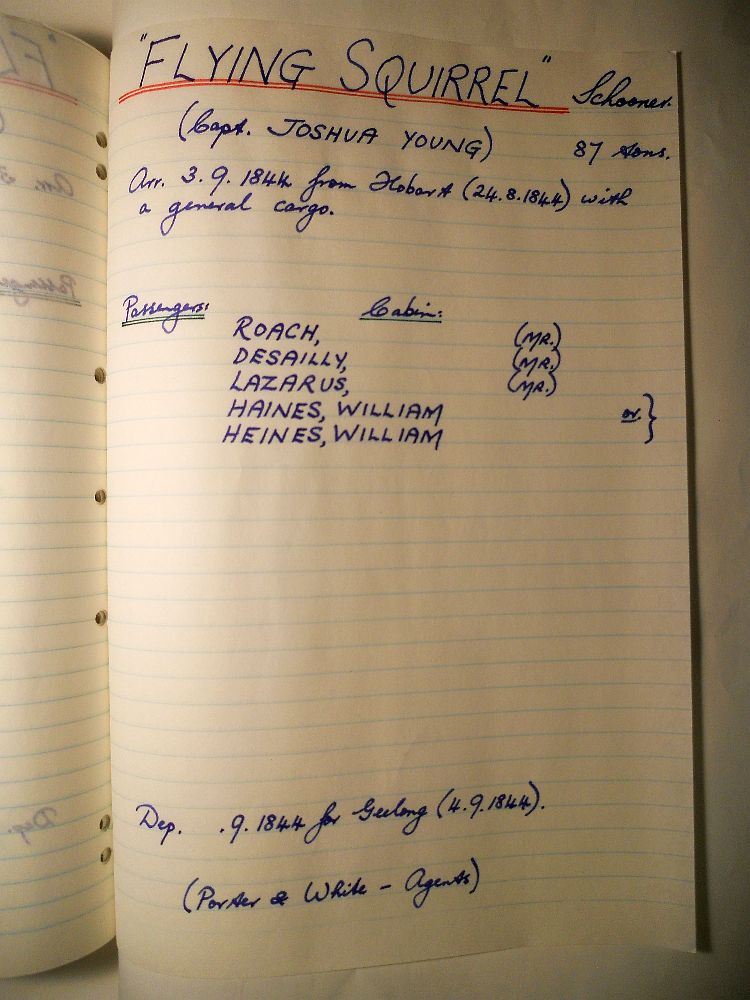 "FLYING SQUIRREL" Schooner.
(Capt. JOSHUA YOUNG) 87 tons.
Arr. 3.9.1844 from Hobart (24.8.1844) with
a general cargo.
Passengers: Cabin:
ROACH, (MR.)
DESAILLY, (MR.)
LAZARUS, (MR.)
HAINES, WILLIAM or }
HEINES, WILLIAM
Dep. .9.1844 for Geelong (4.9.1844).
(Porter & White - Agents)